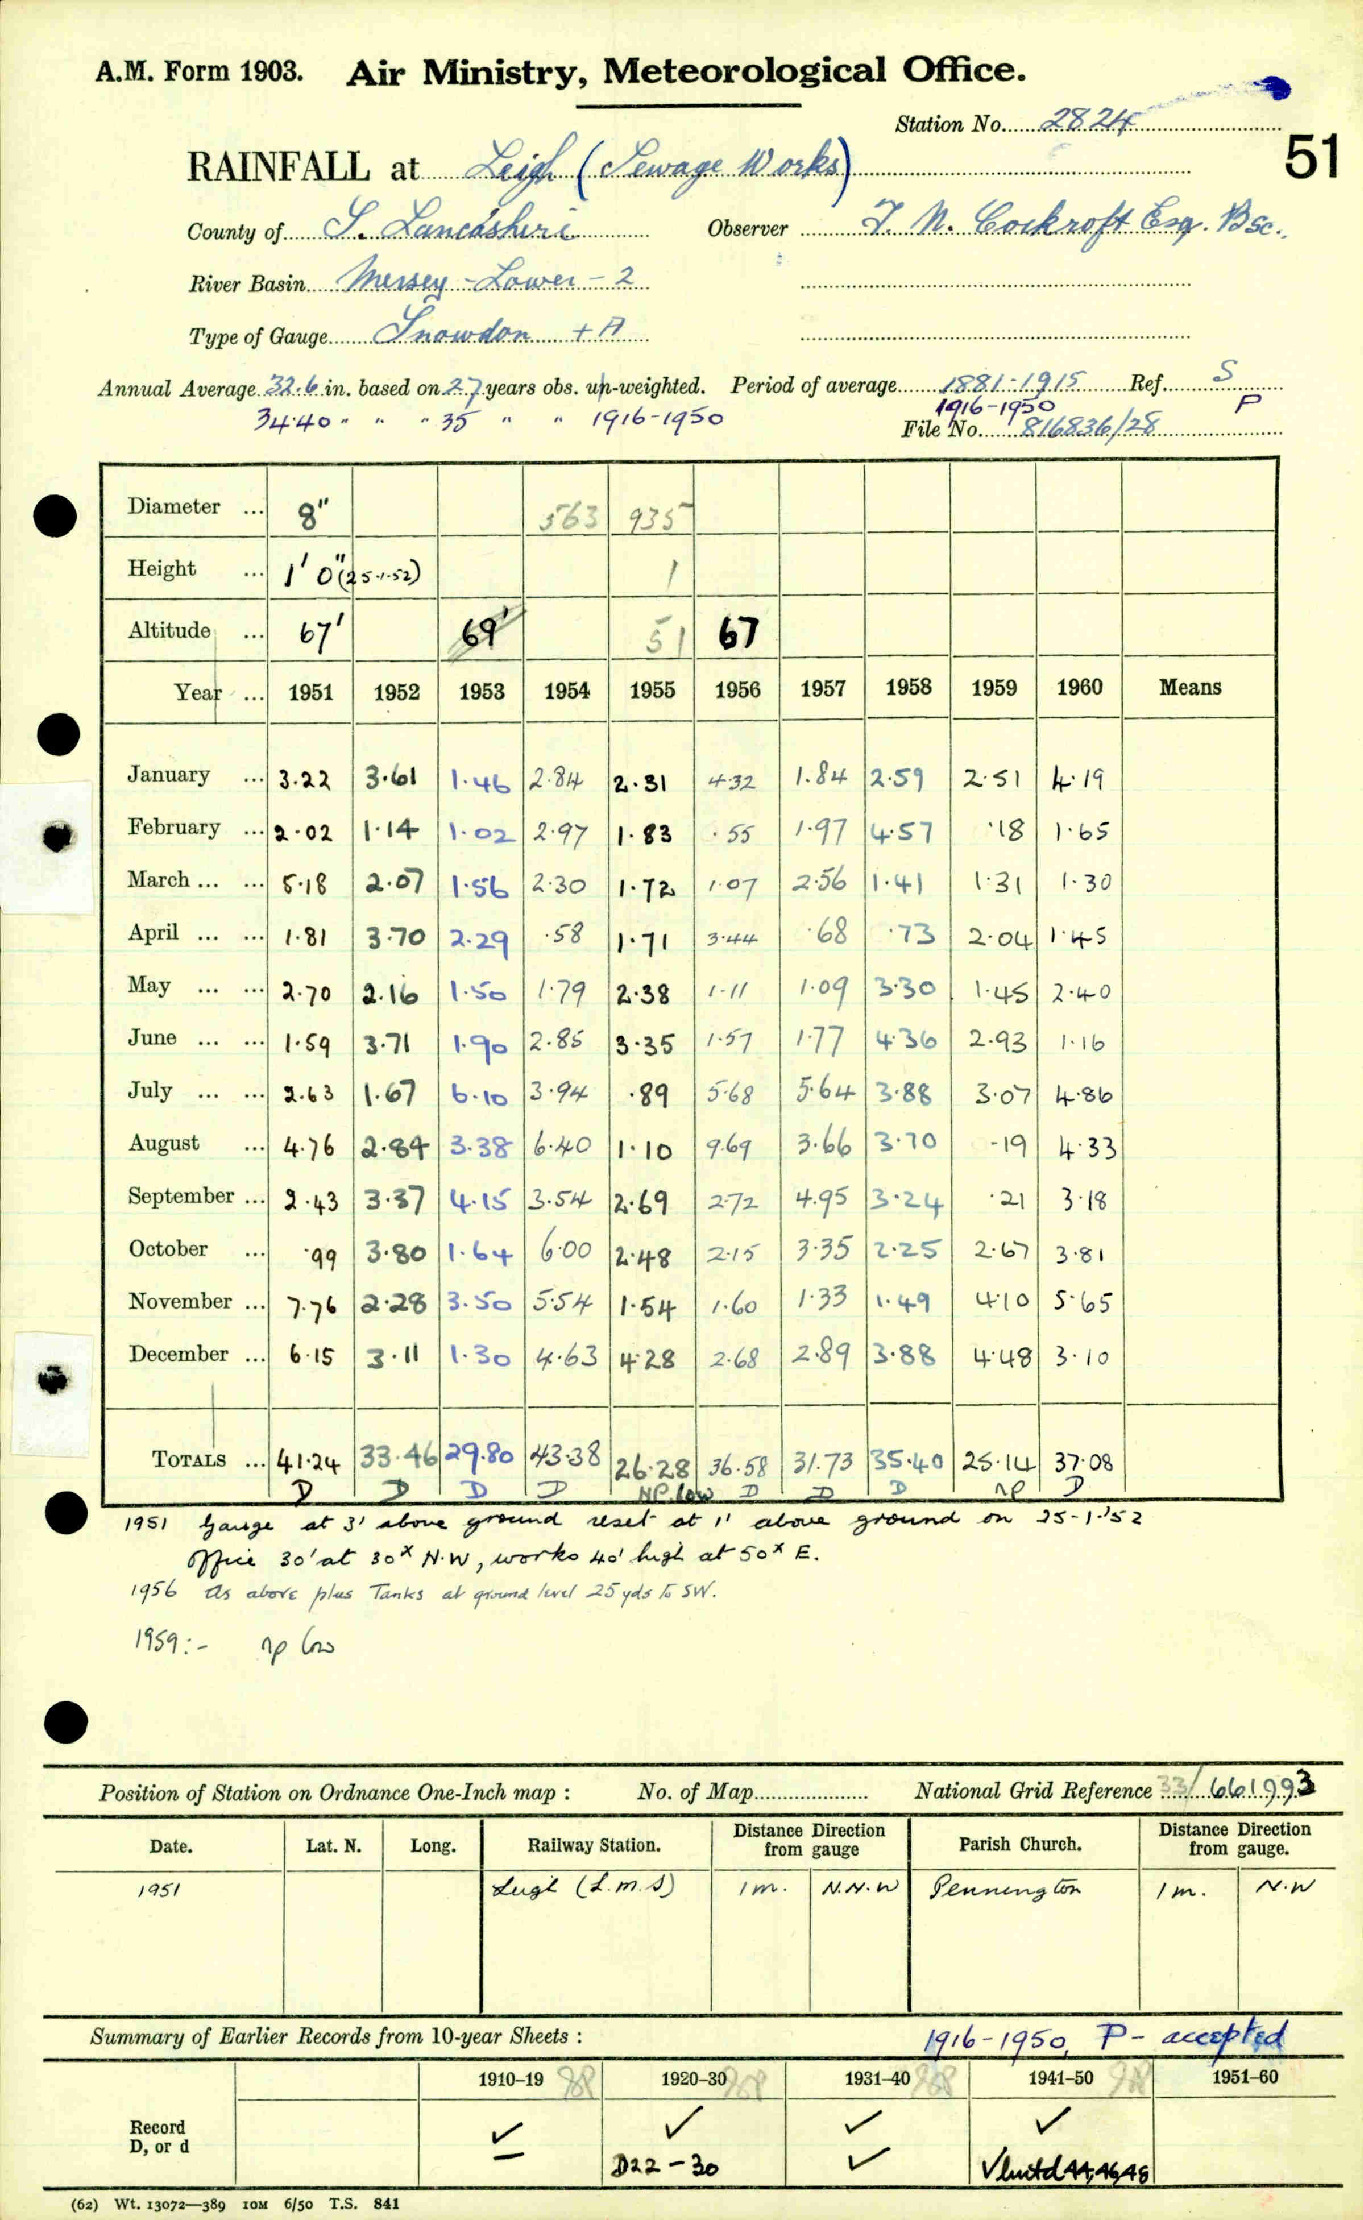 A.M. Form 1903. Air Ministry, Meteorological Office.
Station No. 2824
51
RAINFALL at Leigh (Sewage Works)
County of S. Lancashire Observer F. N. Cockroft Esq. Bsc.
River Basin Mersey - Lower - 2
Type of Gauge Snowdon + A
Annual Average 32.6 in. based on 27 years obs. un-weighted. Period of average 1881-1915 Ref. S
34.40 " " " 35 " " 1916-1950 1916-1950 P
File No. 816836/28
Diameter ... 8" 563 935
Height ... 1' 0" (25-1-52) 1
Altitude ... 67' 69' 51 67
Year ... 1951 1952 1953 1954 1955 1956 1957 1958 1959 1960 Means
January ... 3.22 3.61 1.46 2.84 2.31 4.32 1.84 2.59 2.51 4.19
February ... 2.02 1.14 1.02 2.97 1.83 .55 1.97 4.57 .18 1.65
March ... ... 5.18 2.07 1.56 2.30 1.72 1.07 2.56 1.41 1.31 1.30
April ... ... 1.81 3.70 2.29 .58 1.71 3.44 .68 .73 2.04 1.45
May ... ... 2.70 2.16 1.50 1.79 2.38 1.11 1.09 3.30 1.45 2.40
June ... ... 1.59 3.71 1.90 2.85 3.35 1.57 1.77 4.36 2.93 1.16
July ... ... 2.63 1.67 6.10 3.94 .89 5.68 5.64 3.88 3.07 4.86
August ... 4.76 2.84 3.38 6.40 1.10 9.69 3.66 3.70 .19 4.33
September ... 2.43 3.37 4.15 3.54 2.69 2.72 4.95 3.24 .21 3.18
October ... .99 3.80 1.64 6.00 2.48 2.15 3.35 2.25 2.67 3.81
November ... 7.76 2.28 3.50 5.54 1.54 1.60 1.33 1.49 4.10 5.65
December ... 6.15 3.11 1.30 4.63 4.28 2.68 2.89 3.88 4.48 3.10
TOTALS ... 41.24 33.46 29.80 43.38 26.28 36.58 31.73 35.40 25.14 37.08
D D D D NP. low D D D np D
1951 Gauge at 3' above ground reset at 1' above ground on 25-1-'52
Office 30' at 30x N.W, works 40' high at 50x E.
1956 As above plus Tanks at ground level 25 yds to SW.
1959:- np low
Position of Station on Ordnance One-Inch map : No. of Map National Grid Reference 33/661993
Date. Lat. N. Long. Railway Station. Distance Direction from gauge Parish Church. Distance Direction from gauge.
1951 Leigh (L.M.S) 1m. N.N.W Pennington 1m. N.W
Summary of Earlier Records from 10-year Sheets : 1916-1950, P- accepted
1910-19 1920-30 1931-40 1941-50 1951-60
Record ✓ ✓ ✓ ✓
D, or d — D22-30 ✓ ✓ but d 44,46,48
(62) Wt. 13072—389 10M 6/50 T.S. 841